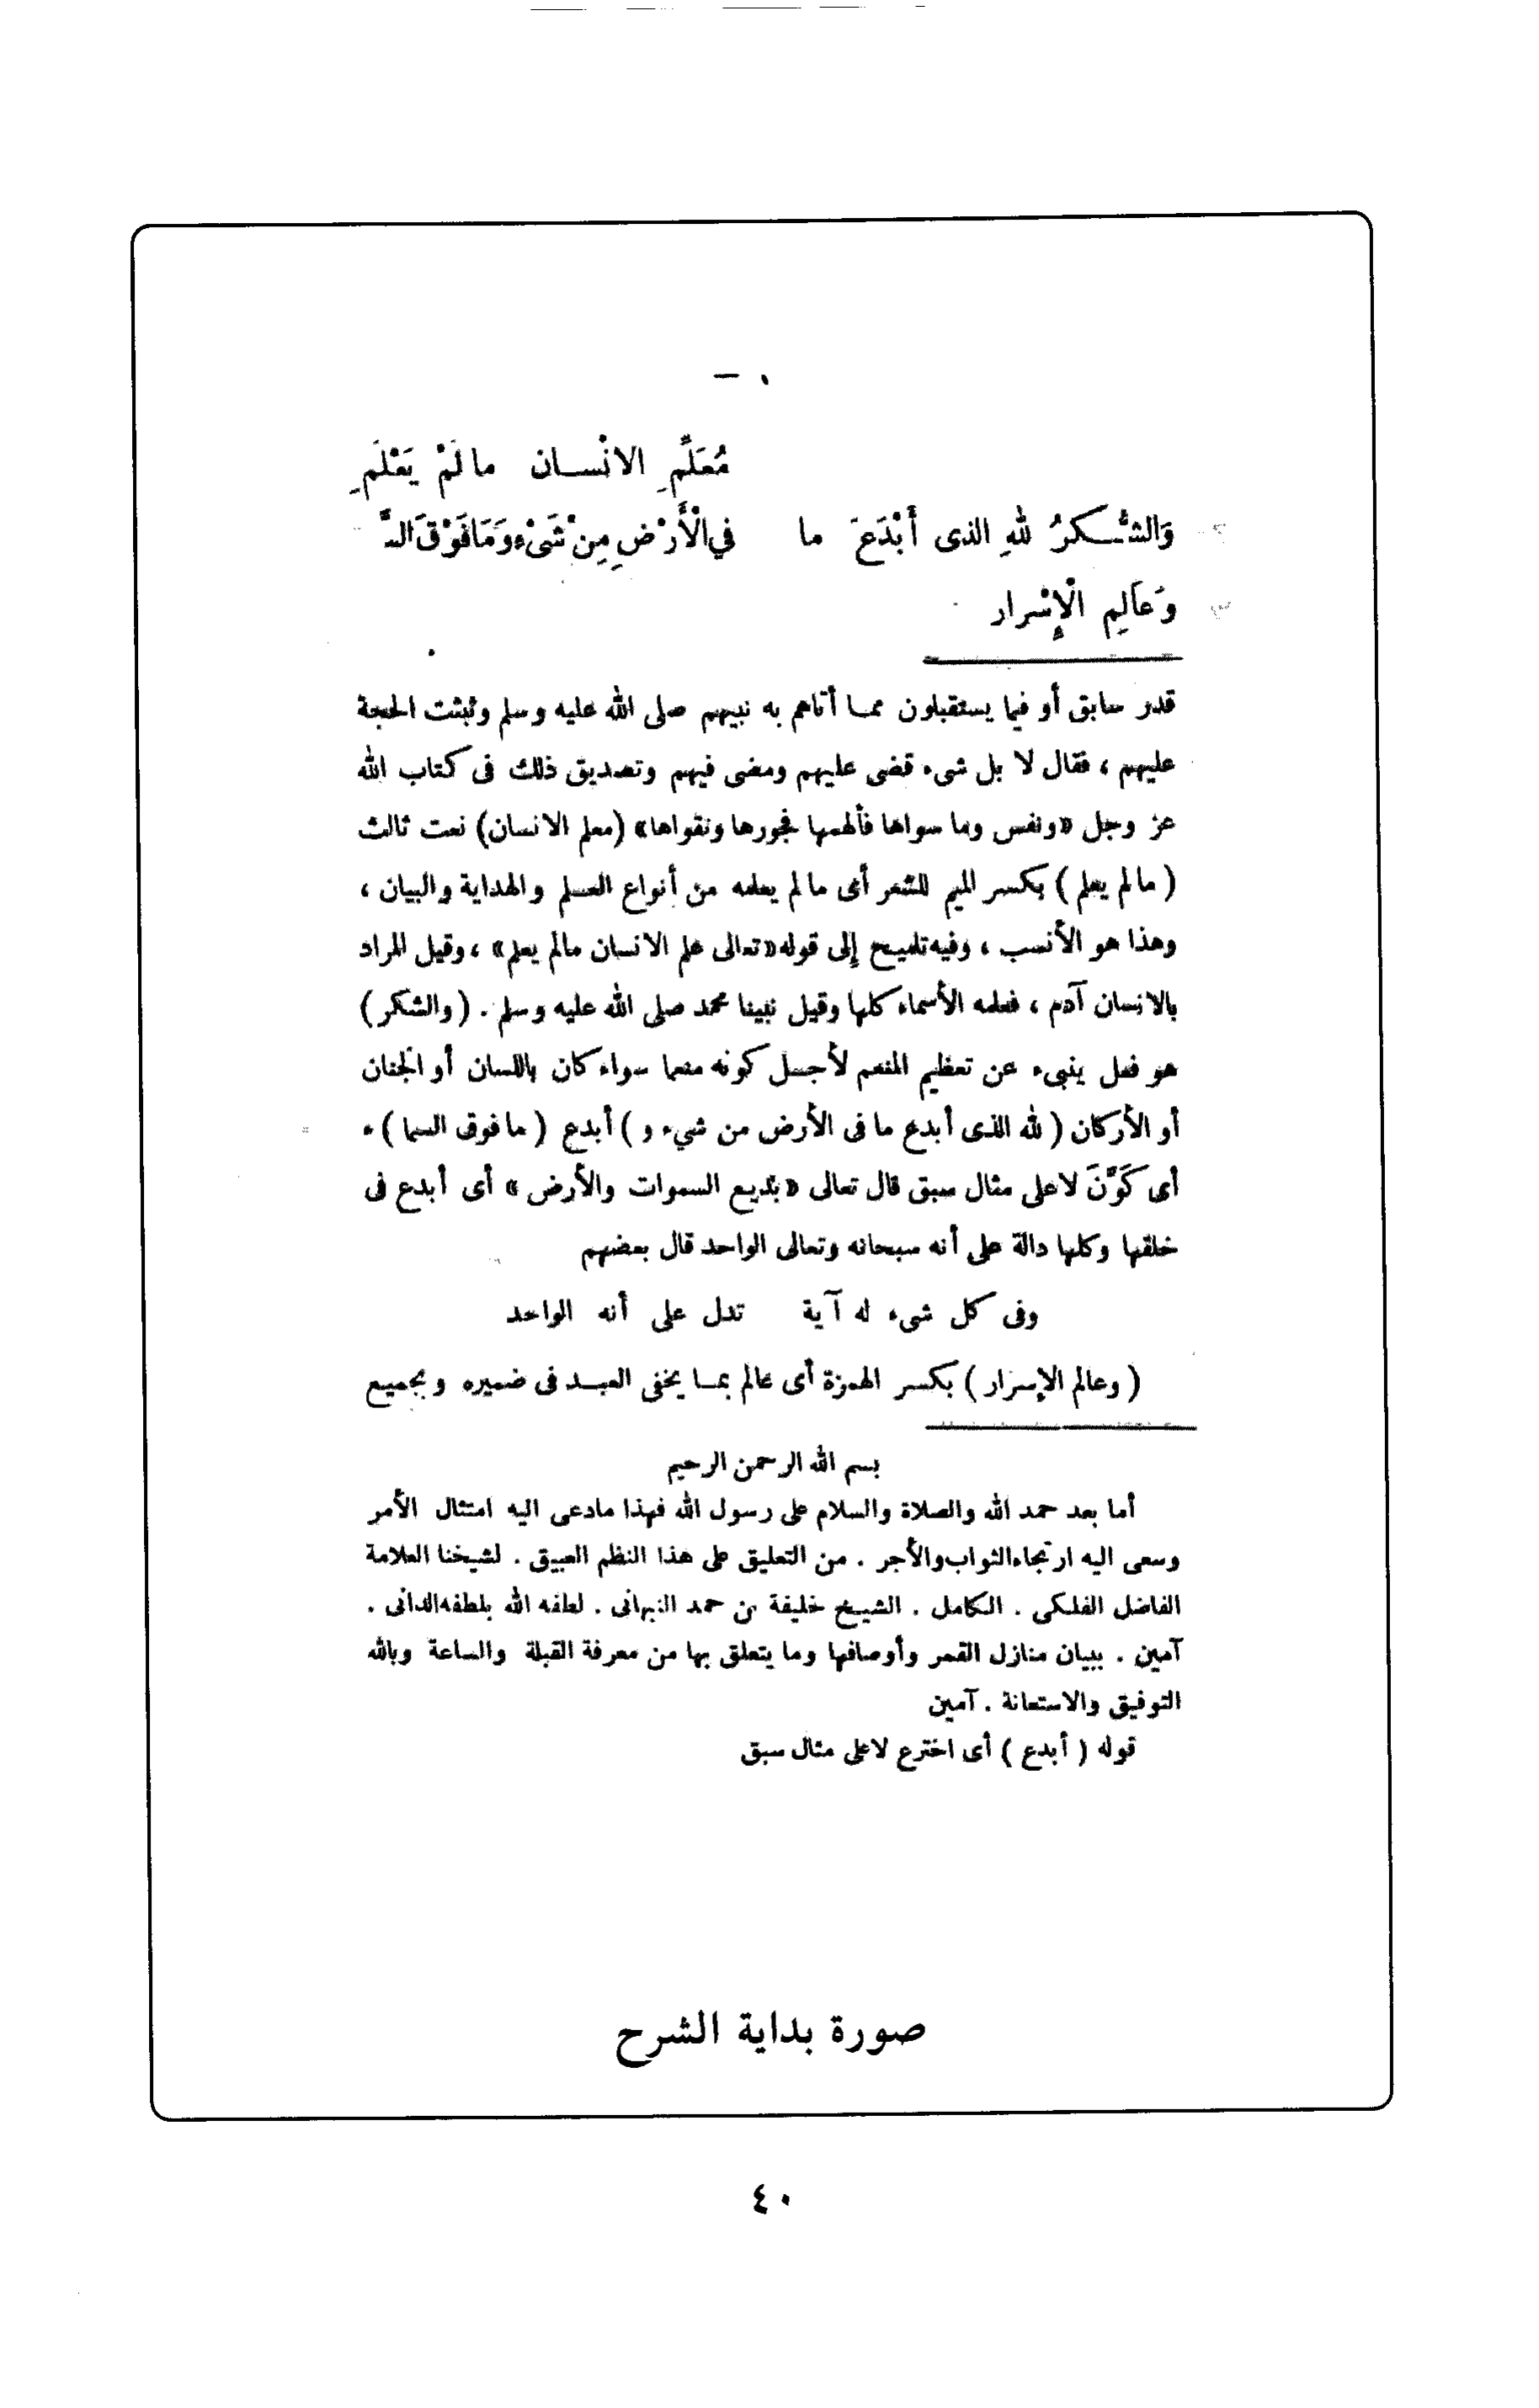 مُعَلِّمِ الانْسان مالَمْ يَعْلَمِ
وَالشُّكرُ للهِ الذى أَبْدَعَ ما في الْأَرْضِ مِنْ شَىْءٍ وَمَا فَوْقَ السَّ
وَعَالِمِ الْإِسْرار
قدر سابق أو فيما يستقبلون ممـا أتاهم به نبيهم صلى الله عليه وسلم وثبثت الحجة
عليهم ، فقال لا بل شىء قضى عليهم ومضى فيهم وتصديق ذلك فى كتاب الله
عز وجل «ونفس وما سواها فألهمها فجورها وتقواها» (معلم الانسان) نعت ثالث
( مالم يعلم ) بكسر الميم للشعر أى مالم يعلمه من أنواع العـلم والهداية والبيان ،
وهذا هو الأنسب ، وفيه تلميح إلى قوله «تعالى علم الانسان مالم يعلم» ، وقيل المراد
بالانسان آدم ، فعلمه الأسماء كلها وقيل نبينا محمد صلى الله عليه وسلم . ( والشكر )
هو فعل ينبىء عن تعظيم المنعم لأجـل كونه منعما سواء كان باللسان أو الجنان
أو الأركان ( لله الذى أبدع ما فى الأرض من شيء و ) أبدع ( ما فوق السما ) ء
أى كَوَّنَ لا على مثال سبق قال تعالى «بَديع السموات والأرض » أى أبدع فى
خلقها وكلها دالة على أنه سبحانه وتعالى الواحد قال بعضهم
وفى كل شىء له آية تدل على أنه الواحد
( وعالم الإسرار ) بكسر الهمزة أى عالم بمـا يخفى العبـد فى ضميره وبجميع
بسم الله الرحمن الرحيم
أما بعد حمد الله والصلاة والسلام على رسول الله فهذا مادعى اليه امتثال الأمر
وسعى اليه ارتجاء الثواب والأجر . من التعليق على هذا النظم العبيق . لشيخنا العلامة
الفاضل الفلكى . الكامل . الشيخ خليفة بن حمد النبهانى . لطفه الله بلطفه الدانى .
آمين . ببيان منازل القمر وأوصافها وما يتعلق بها من معرفة القبلة والساعة وبالله
التوفيق والاستعانة . آمين
قوله ( أبدع ) أى اخترع لا على مثال سبق
صورة بداية الشرح
٤٠